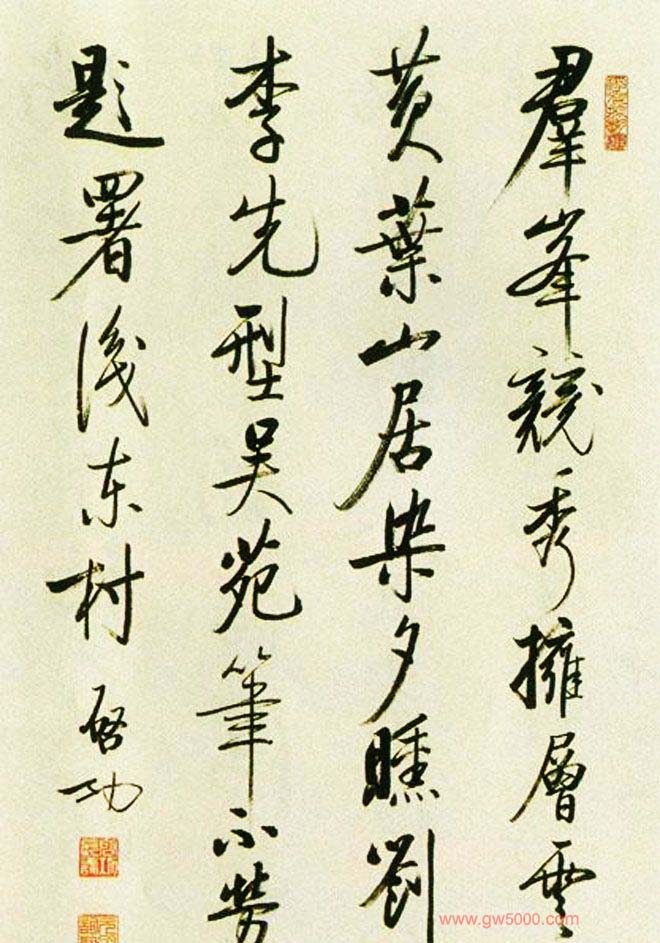 羣峯競秀擁層雲
黄葉山居染夕曛劉
李先型吴苑筆不勞
題署淺东村
啓功
www.gw5000.com